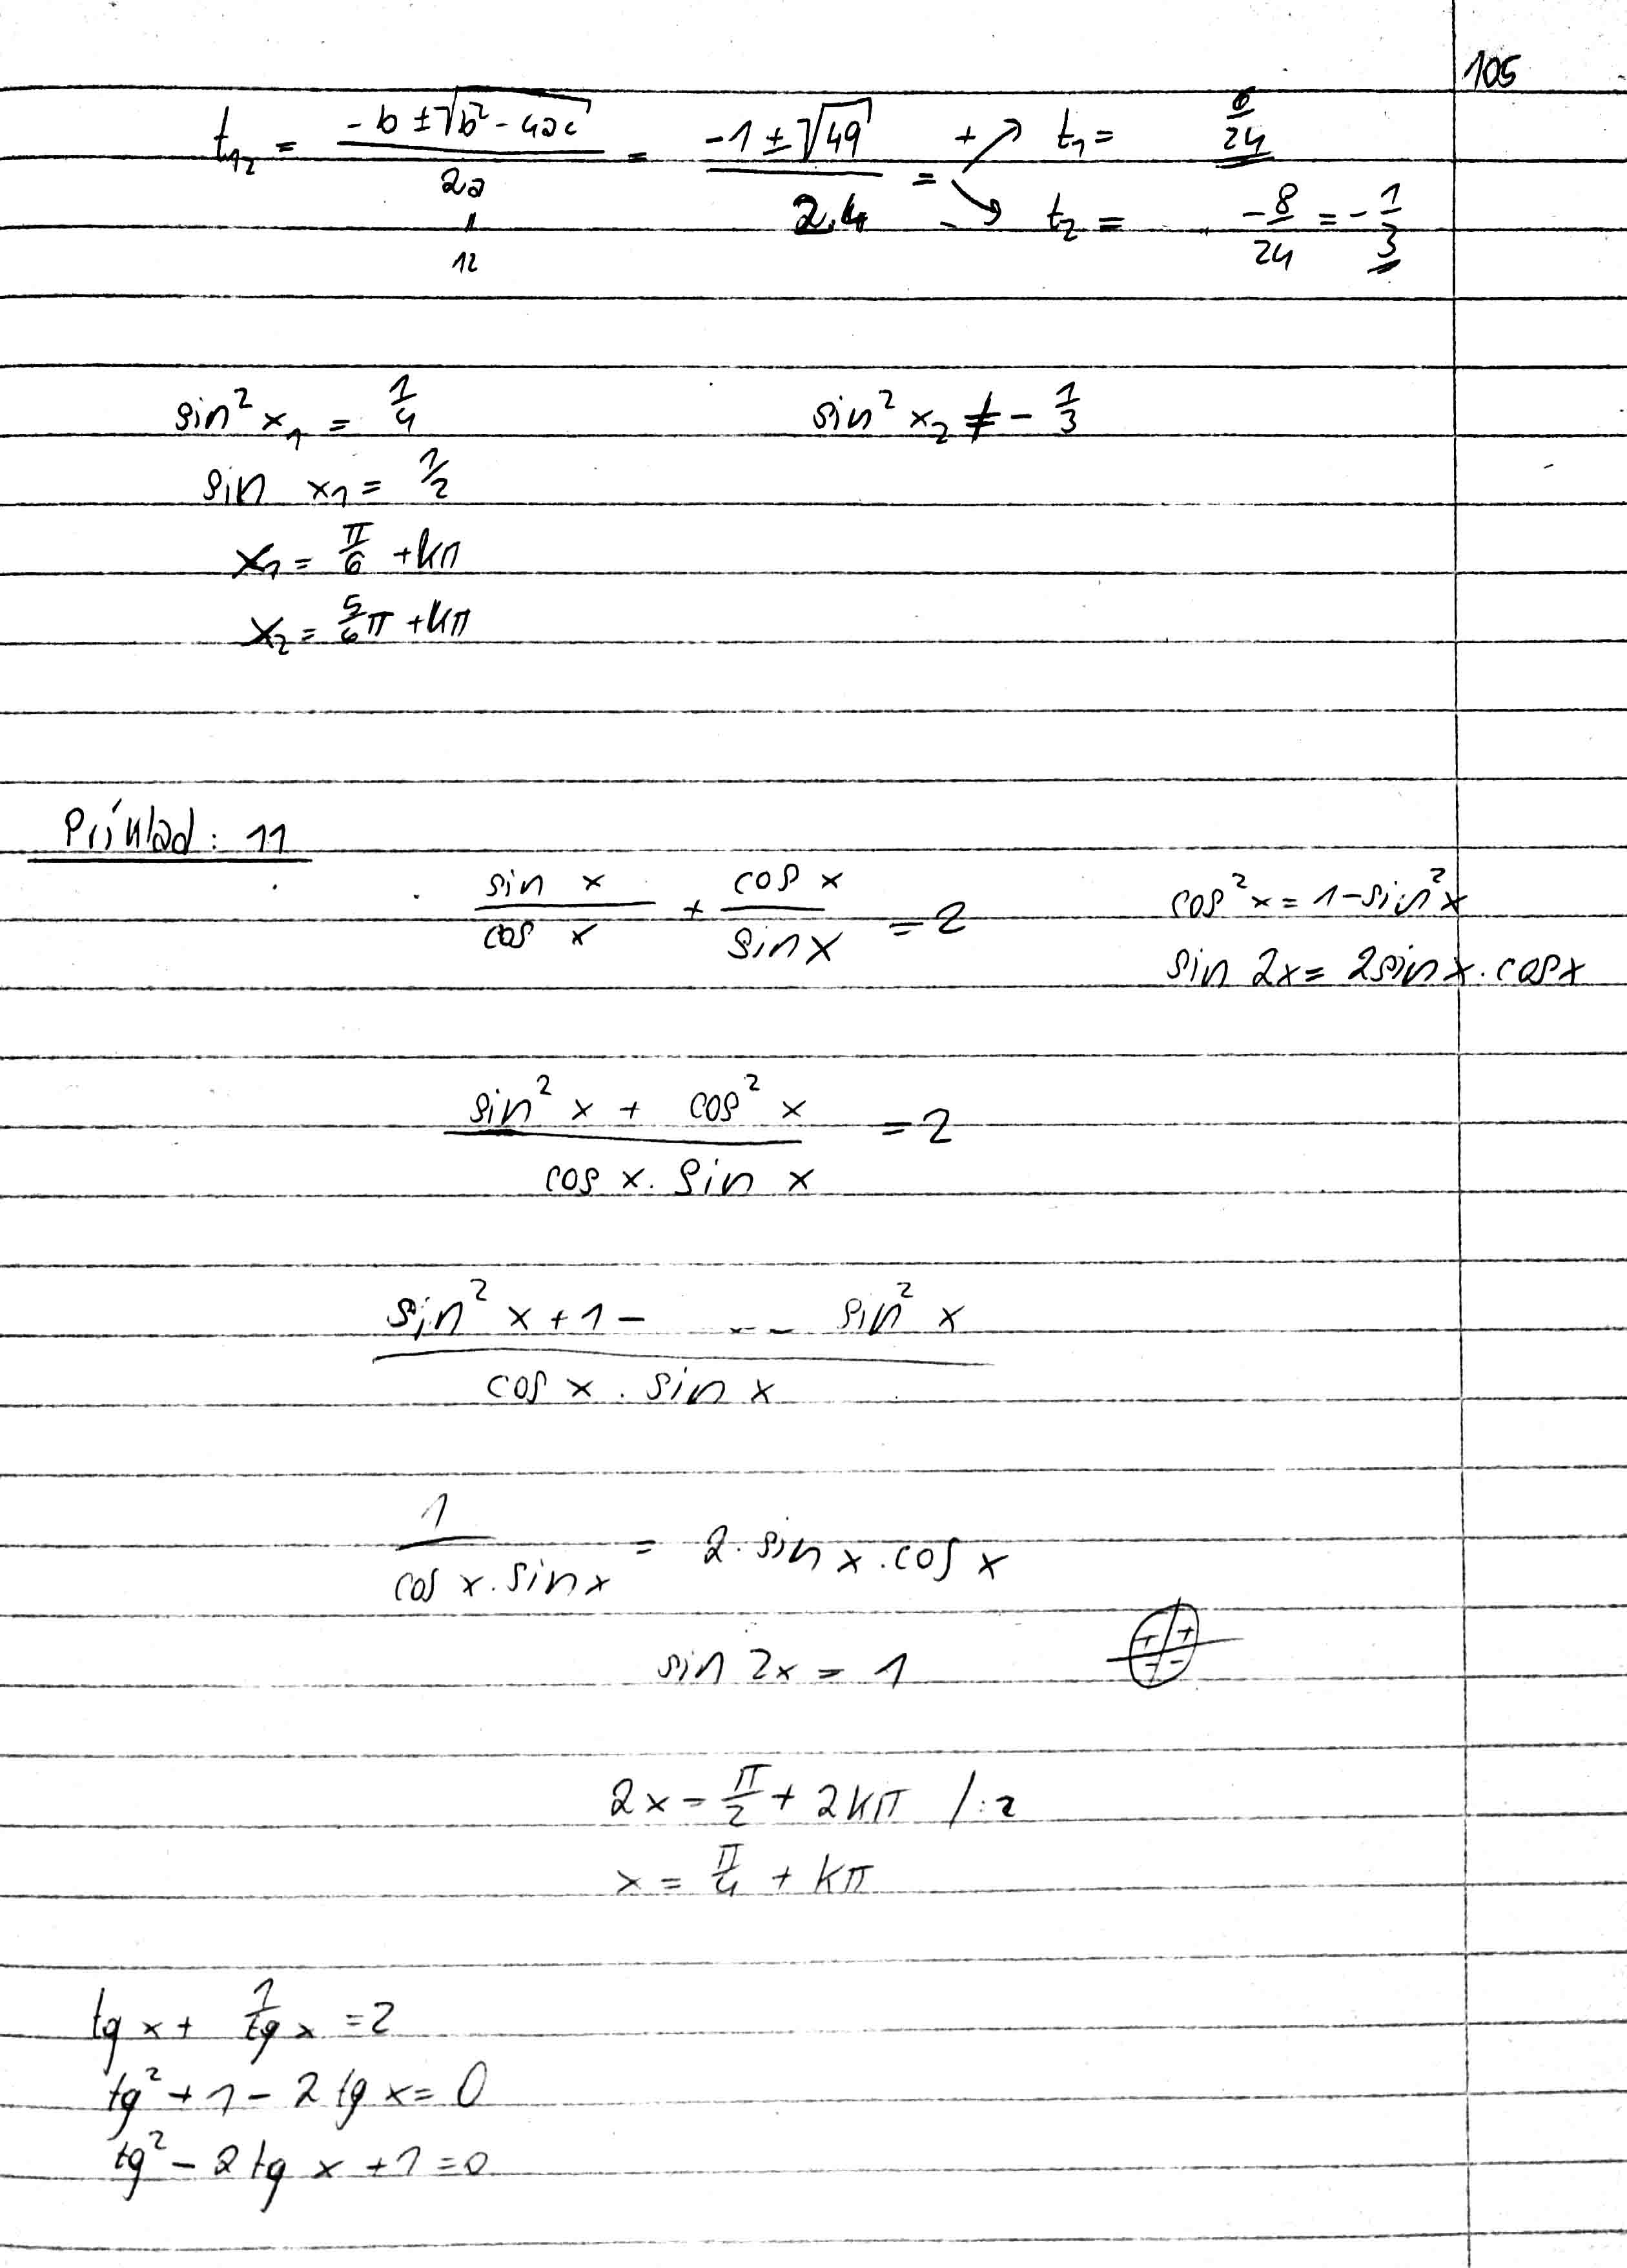 105
t₁₂ = (-b ± √(b² - 4ac))/(2a) = (-1 ± √49)/(2.4) = + ↗ t₁ = 6/24
- ↘ t₂ = -8/24 = -1/3
॥
12
sin² x₁ = 1/4 sin² x₂ ≠ - 1/3
sin x₁ = 1/2
x₁ = π/6 + kπ
x₂ = 5/6 π + kπ
Príklad: 11
sin x/cos x + cos x/sin x = 2 cos² x = 1 - sin² x
sin 2x = 2 sin x . cos x
(sin² x + cos² x)/(cos x . sin x) = 2
(sin² x + 1 - -- sin² x)/(cos x . sin x)
1/(cos x . sin x) = 2 . sin x . cos x
+ +
sin 2x = 1 - -
2x = π/2 + 2kπ /:2
x = π/4 + kπ
tg x + 1/tg x = 2
tg² + 1 - 2 tg x = 0
tg² - 2 tg x + 1 = 0